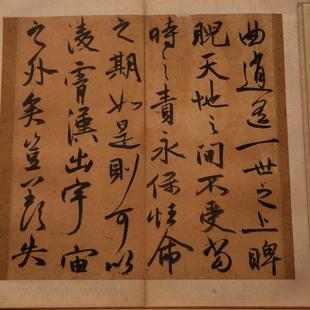 曲逍遥一世之上睥
睨天地之间不受当
時之責永保性命
之期如是則可以
凌霄漢出宇宙
之外矣豈羡夫